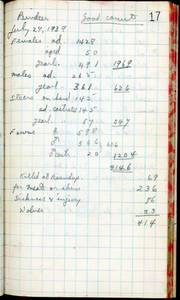 Reindeer Good count 17
July 24, 1939
Females ad. 1428
aged 50
yearl. 491 1969
males ad. 265
yearl. 361 626
Steers on hand 145
ad castrated 145
yearl. 57 347
Fawns ♀ 598
♂ 586
Death 20 1204
4146
Killed at Roundup 69
for meat or skins 236
Sickness & injury 86
Wolves 23
414